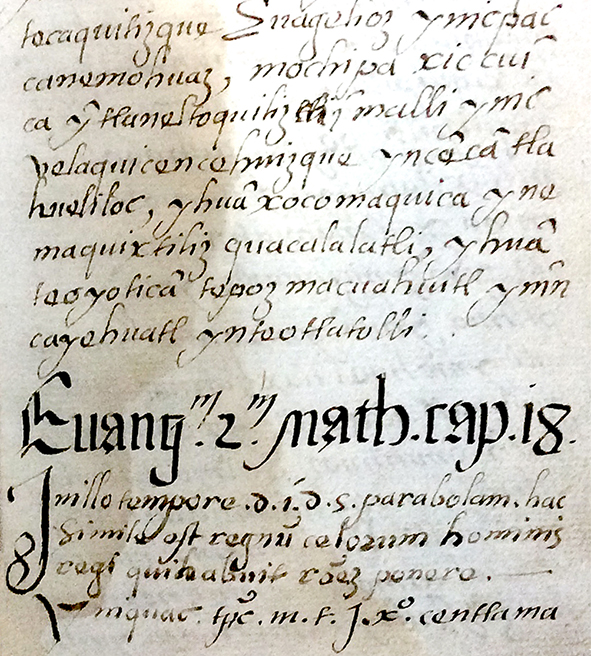 tecaquitizque Euãgelioz ynicpac
canemohuaz, mochipa xiccui
ca ỹtlaneltoquiliz malli ynic
velaquicencehuizque yncẽcã tla
hueliloc, yhuã xocomaquica yne
maquixtiliz quacalalatli, yhuã
teoyoticã tepozmacuahuitl ymĩn
cayehuatl ynteotlatolli.
Euangᵐ. 2ᵐ. Math. cap. 18.
In illo tempore .d. i. d. s. parabolam. hac
Simile est regnũ celorum hominis
regi qui habuit rõez ponere.
iniquac. tp̃c. m. t. J. xº. centlama